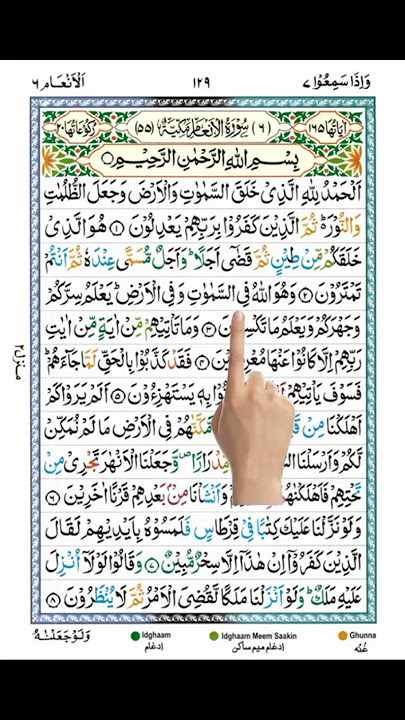 وَاِذَا سَمِعُوْا ٧ ١٢٩ اَلْاَنْعَام ٦
اٰيَاتُهَا ١٦٥ (٦) سُوْرَةُ الْاَنْعَامِ مَكِّيَّةٌ (٥٥) رُكُوْعَاتُهَا ٢٠
بِسْمِ اللهِ الرَّحْمٰنِ الرَّحِيْمِ
اَلْحَمْدُ لِلّٰهِ الَّذِىْ خَلَقَ السَّمٰوٰتِ وَالْاَرْضَ وَجَعَلَ الظُّلُمٰتِ
وَالنُّوْرَ ؕ ثُمَّ الَّذِيْنَ كَفَرُوْا بِرَبِّهِمْ يَعْدِلُوْنَ ١ هُوَ الَّذِىْ
خَلَقَكُمْ مِّنْ طِيْنٍ ثُمَّ قَضٰٓى اَجَلًا ؕ وَاَجَلٌ مُّسَمًّى عِنْدَهٗ ثُمَّ اَنْتُمْ
تَمْتَرُوْنَ ٢ وَهُوَ اللهُ فِى السَّمٰوٰتِ وَفِى الْاَرْضِ ؕ يَعْلَمُ سِرَّكُمْ
وَجَهْرَكُمْ وَيَعْلَمُ مَا تَكْسِبُوْنَ ٣ وَمَا تَاْتِيْهِمْ مِّنْ اٰيَةٍ مِّنْ اٰيٰتِ
رَبِّهِمْ اِلَّا كَانُوْا عَنْهَا مُعْرِضِيْنَ ٤ فَقَدْ كَذَّبُوْا بِالْحَقِّ لَمَّا جَآءَهُمْ ؕ
فَسَوْفَ يَاْتِيْهِمْ بِهٖ يَسْتَهْزِءُوْنَ ٥ اَلَمْ يَرَوْا كَمْ
اَهْلَكْنَا مِنْ فِى الْاَرْضِ مَا لَمْ نُمَكِّنْ
لَّكُمْ وَاَرْسَلْنَا مِّدْرَارًا ص وَّجَعَلْنَا الْاَنْهٰرَ تَجْرِىْ مِنْ
تَحْتِهِمْ فَاَهْلَكْنٰهُمْ وَاَنْشَاْنَا مِنْۢ بَعْدِهِمْ قَرْنًا اٰخَرِيْنَ ٦
وَلَوْ نَزَّلْنَا عَلَيْكَ كِتٰبًا فِىْ قِرْطَاسٍ فَلَمَسُوْهُ بِاَيْدِيْهِمْ لَقَالَ
الَّذِيْنَ كَفَرُوْٓا اِنْ هٰذَآ اِلَّا سِحْرٌ مُّبِيْنٌ ٧ وَقَالُوْا لَوْلَآ اُنْزِلَ
عَلَيْهِ مَلَكٌ ؕ وَلَوْ اَنْزَلْنَا مَلَكًا لَّقُضِىَ الْاَمْرُ ثُمَّ لَا يُنْظَرُوْنَ ٨
منزل ٢
وَلَوْ جَعَلْنٰهُ
Idghaam Idghaam Meem Saakin Ghunna
إدغام إدغام ميم ساكن غُنّه